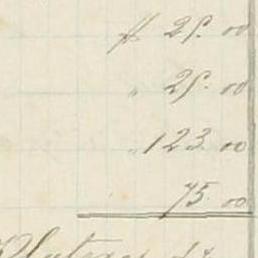 ƒ 25.00
" 25.00
" 123.00
75.00